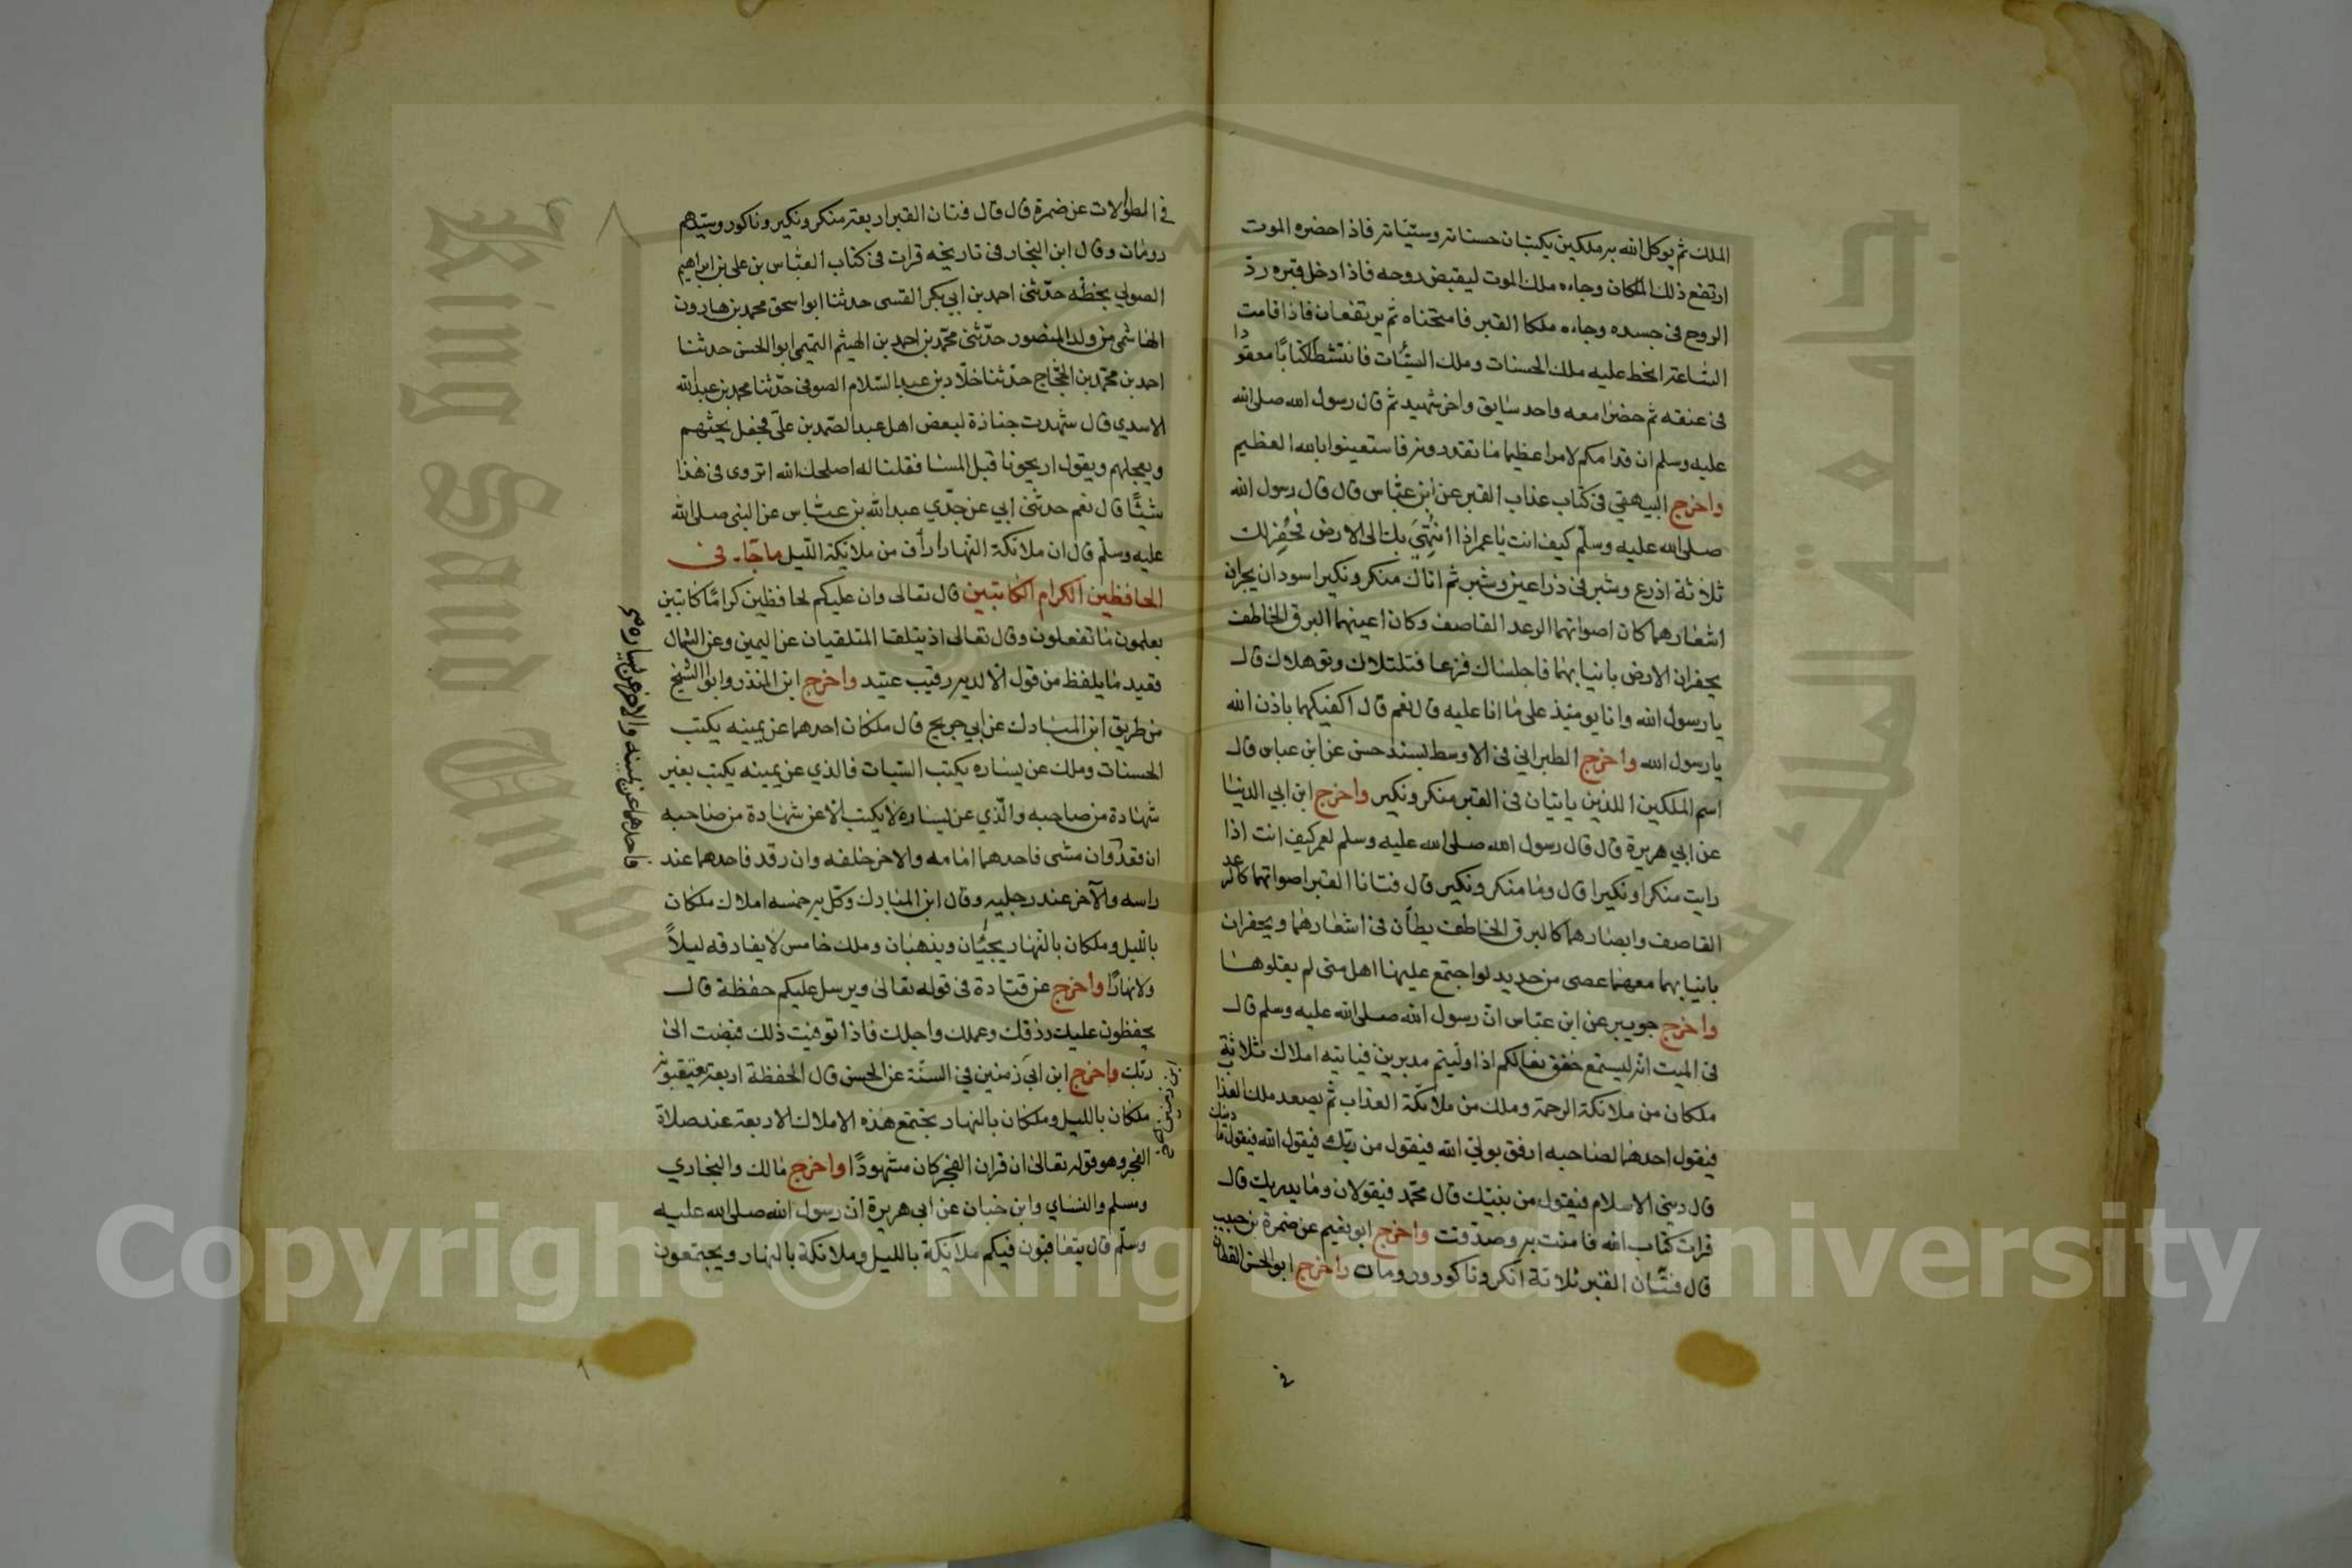 الملك ثم يوكل الله به ملكين يكتبان حسناته وسيئاته فاذا حضره الموت
ارتفع ذلك الملكان وجاءه ملك الموت ليقبض روحه فاذا دخل قبره ردّ
الروح فى جسده وجاءه ملكا القبر فامتحناه ثم يرتفعان فاذا قامت
الساعة انحط عليه ملك الحسنات وملك السيئات فانتشطا كتابًا معقودا
فى عنقه ثم حضرا معه واحد سايق واخر شهيد ثم قال رسول الله صلى الله
عليه وسلم ان قدامكم لامرا عظيما ما تقدرونه فاستعينوا بالله العظيم
واخرج البيهقي فى كتاب عذاب القبر عن ابن عباس قال قال رسول الله
صلى الله عليه وسلم كيف انت يا عمر اذا انتهي بك الى الارض فحفر لك
ثلاثة اذرع وشبر فى ذراعين وشبر ثم اتاك منكر ونكير اسودان يجران
اشعارهما كان اصواتهما الرعد القاصف وكان اعينهما البرق الخاطف
يحفران الارض بانيابهما فاجلساك فزعا فتلتلاك وتوهلاك قال
يا رسول الله وانا يومئذ على ما انا عليه قال نعم قال اكفيكهما باذن الله
يا رسول الله واخرج الطبراني فى الاوسط بسند حسن عن ابن عباس قال
اسم الملكين اللذين ياتيان فى القبر منكر ونكير واخرج ابن ابي الدنيا
عن ابي هريرة قال قال رسول الله صلى الله عليه وسلم لعمر كيف انت اذا
رايت منكرا ونكيرا قال وما منكر ونكير قال فتانا القبر اصواتهما كالرعد
القاصف وابصارهما كالبرق الخاطف يطآن فى اشعارهما ويحفران
بانيابهما معهما عصى من حديد لو اجتمع عليها اهل منى لم يقلوها
واخرج جويبر عن ابن عباس ان رسول الله صلى الله عليه وسلم قال
فى الميت انه ليسمع خفق نعالكم اذا وليتم مدبرين فياتيه املاك ثلاثة
ملكان من ملائكة الرحمة وملك من ملائكة العذاب ثم يصعد ملك العذاب
فيقول احدهما لصاحبه ارفق بولي الله فيقول من ربك فيقول الله فيقول ما دينك
قال ديني الاسلام فيقول من نبيك قال محمد فيقولان وما يدريك قال
قرات كتاب الله فامنت به وصدقت واخرج ابو نعيم عن ضمرة بن حبيب
قال فتان القبر ثلاثة انكر وناكور ورومان واخرج ابو الحسن القطان
فى
في المطولات عن ضمرة قال قال فتان القبر اربعة منكر ونكير وناكور وسيدهم
رومان وقال ابن النجار فى تاريخه قرات فى كتاب العباس بن على بن ابراهيم
الصولي بخطه حدّثني احمد بن ابي بكر القسى حدثنا ابو اسحق محمد بن هارون
الهاشمي من ولد المنصور حدّثني محمّد بن احمد بن الهيثم التميمي ابو الحسن حدثنا
احمد بن محمّد بن الحجاج حدّثنا خلّاد بن عبد السّلام الصوفى حدّثنا محمد بن عبد الله
الاسدي قال شهدت جنازة لبعض اهل عبد الصّمد بن علي فجعل يحثهم
ويعجلهم ويقول اريحونا قبل المسا فقلنا له اصلحك الله اتروى فى هذا
شيئًا قال نعم حدثني ابي عن جدّي عبد الله بن عباس عن النبي صلى الله
عليه وسلم قال ان ملائكة النهار ارأف من ملائكة اللّيل ما جآء فى
الحافظين الكرام الكاتبين قال تعالى وان عليكم لحافظين كرامًا كاتبين
يعلمون ما تفعلون وقال تعالى اذ يتلقا المتلقيان عن اليمين وعن الشمال
قعيد ما يلفظ من قول الا لديه رقيب عتيد واخرج ابن المنذر وابو الشيخ
من طريق ابن المبارك عن ابي جريج قال ملكان احدهما عن يمينه يكتب
الحسنات وملك عن يساره يكتب السيّات فالذي عن يمينه يكتب بغير
شهادة من صاحبه والّذي عن يساره لا يكتب الا عن شهادة من صاحبه
ان قعد وان مشى فاحدهما امامه والاخر خلفه وان رقد فاحدهما عند
راسه والآخر عند رجليه وقال ابن المبارك وكل به خمسه املاك ملكان
بالليل وملكان بالنهار يجيئان ويذهبان وملك خامس لا يفارقه ليلاً
ولا نهارًا واخرج عن قتادة فى قوله تعالى ويرسل عليكم حفظة قال
يحفظون عليك رزقك وعملك واجلك فاذا توفيت ذلك قبضت الى
ربّك واخرج ابن ابي زمنين في السنّة عن الحسن قال الحفظة اربعة يعتقبونه
ملكان بالليل وملكان بالنهار يجتمع هذه الاملاك الاربعة عند صلاة
الفجر وهو قوله تعالى ان قران الفجر كان مشهودًا واخرج مالك والبخاري
ومسلم والنساي وابن حبان عن ابى هريرة ان رسول الله صلى الله عليه
وسلّم قال يتعاقبون فيكم ملائكة بالليل وملائكة بالنهار ويجتمعون
فاحدهما عن يمينه والاخر عن يساره صح
ابن زمنين صح
King Saud University
جامعة الملك سعود
Copyright © King Saud University